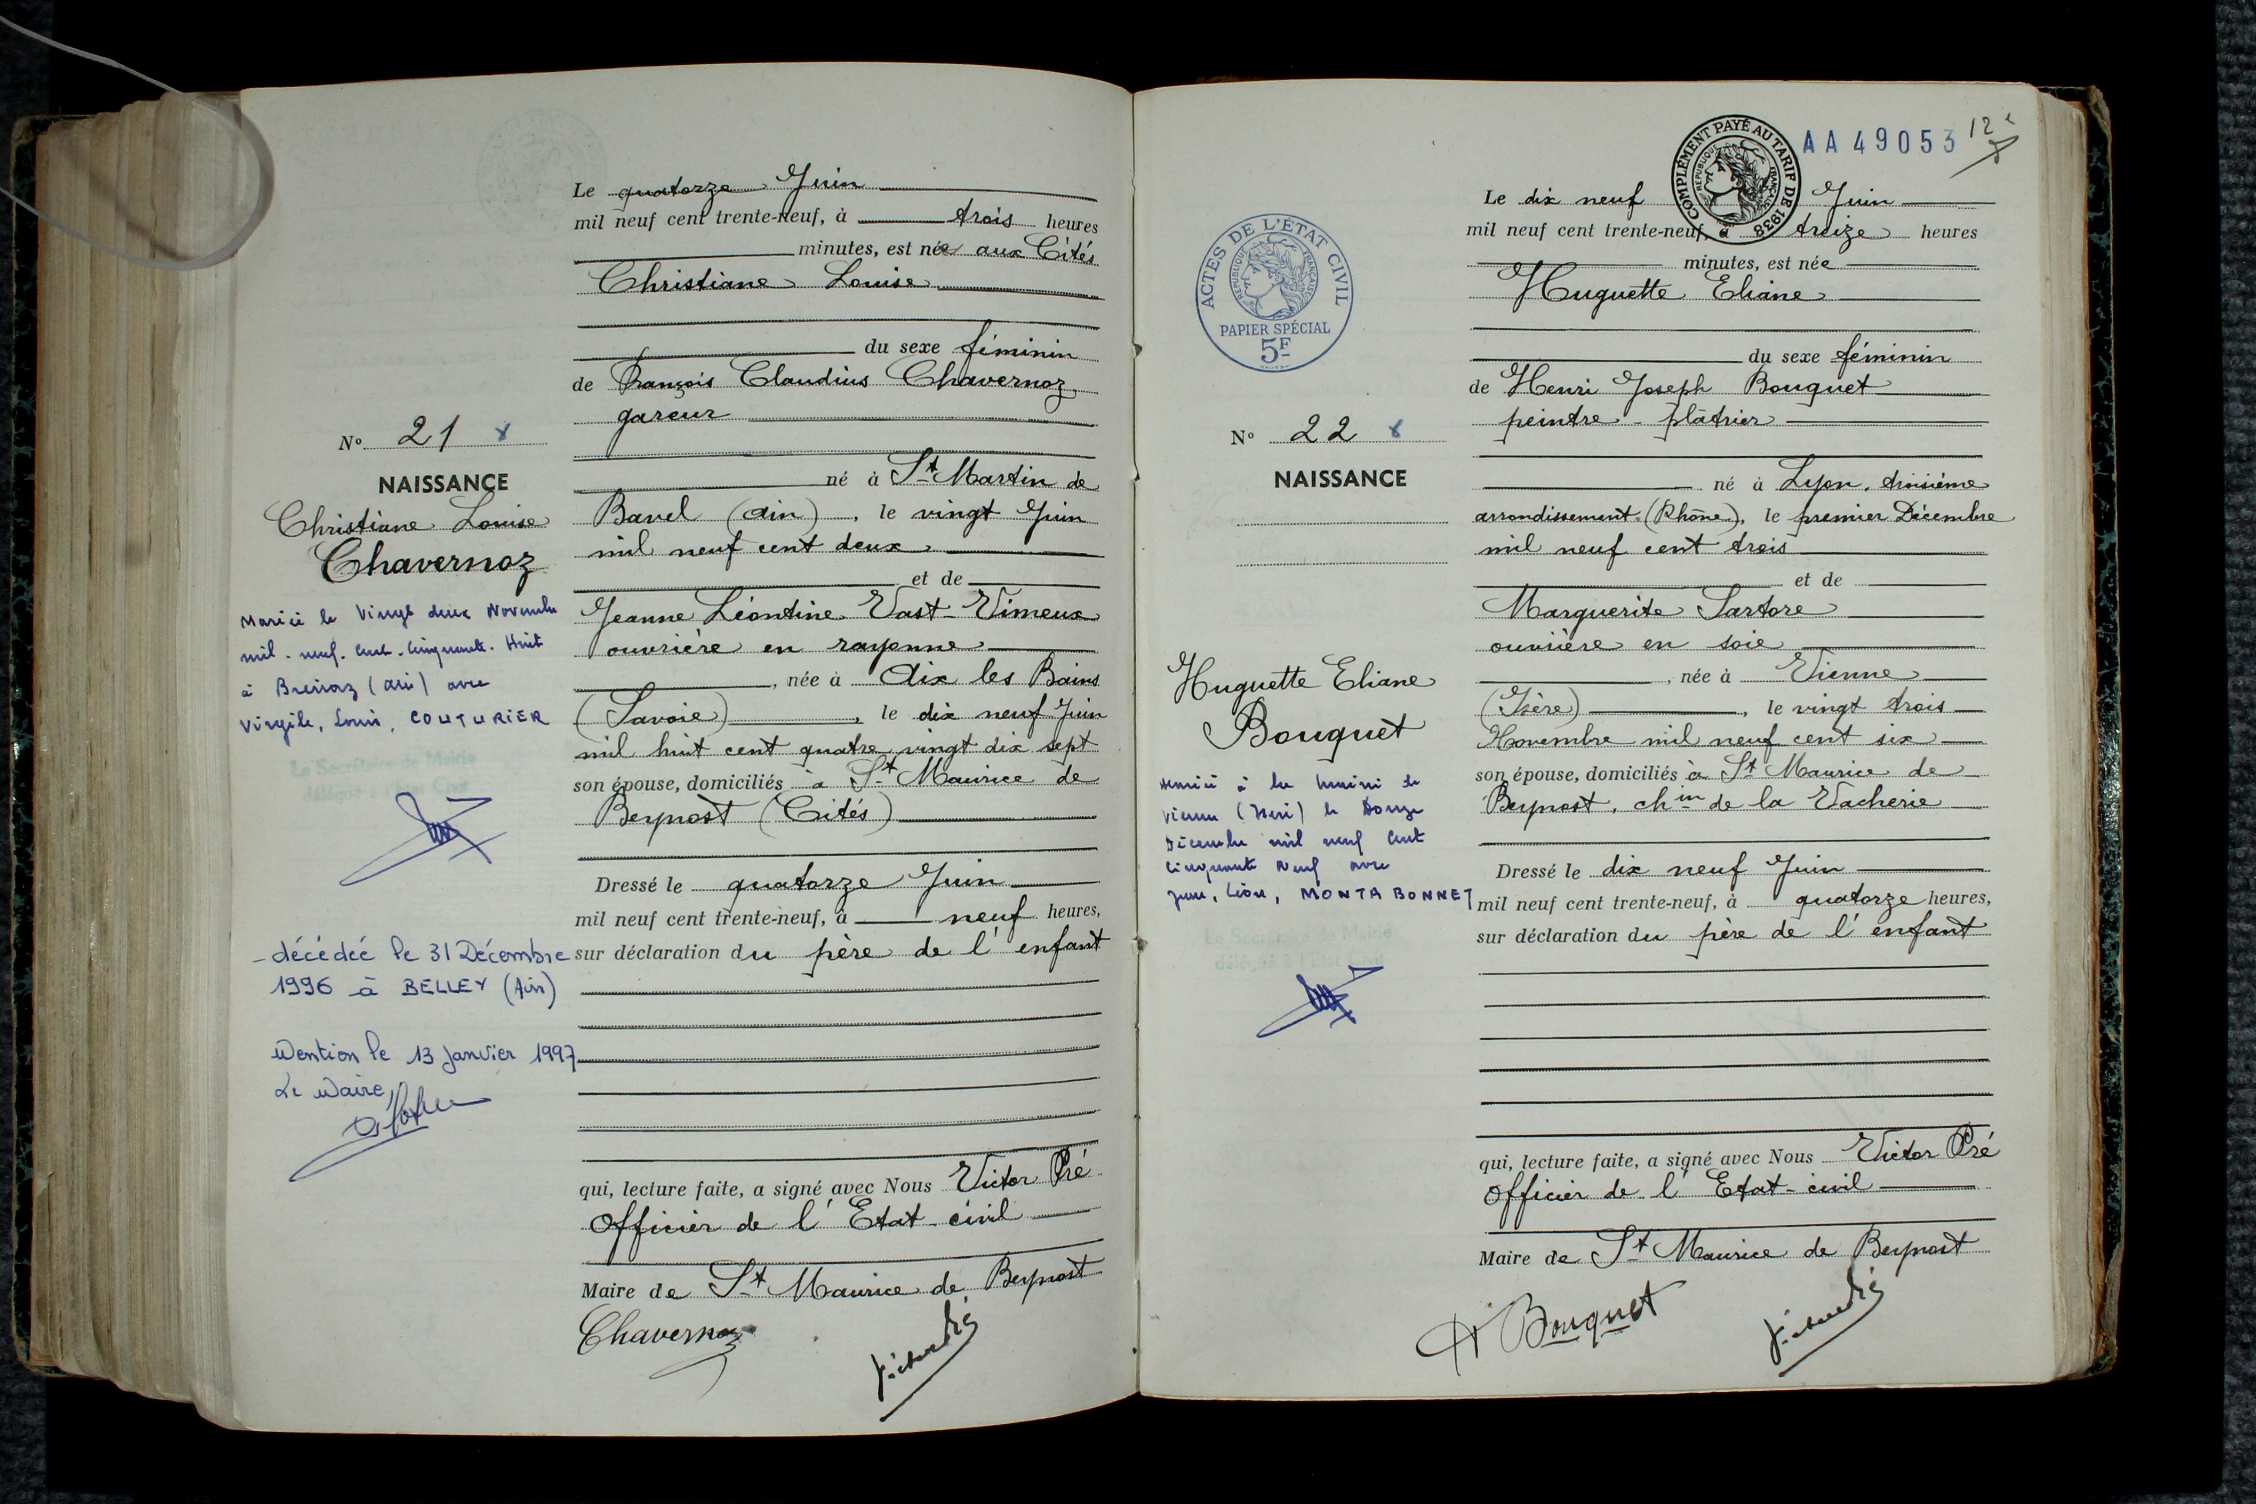 Le quatorze Juin
mil neuf cent trente-neuf, à trois heures
minutes, est née aux Cités
Christiane Louise
du sexe féminin
de François Claudius Chavernoz
gareur
né à St Martin de
Bavel (Ain), le vingt Juin
mil neuf cent deux
et de
Jeanne Léontine Vast-Vimeux
ouvrière en rayonne
, née à Aix les Bains
(Savoie), le dix neuf Juin
mil huit cent quatre vingt dix sept
son épouse, domiciliés à St Maurice de
Beynost (Cités)
Dressé le quatorze Juin
mil neuf cent trente-neuf, à neuf heures,
sur déclaration du père de l'enfant
qui, lecture faite, a signé avec Nous Victor Pré
Officier de l'Etat-civil
Maire de St Maurice de Beynost
Chavernoz
No 21
NAISSANCE
Christiane Louise
Chavernoz
Mariée le Vingt deux Novembre
mil-neuf-cent-cinquante-Huit
à (Ain) avec
Virgile, Louis, COUTURIER
Le Secrétaire de Mairie
délégué à l'Etat Civil
- décédée le 31 Décembre
1996 à BELLEY (Ain)
Mention le 13 janvier 1997
Le Maire,
AA 49053
12
COMPLÉMENT PAYÉ AU TARIF DE 1938
RÉPUBLIQUE FRANÇAISE
ACTES DE L'ÉTAT CIVIL
RÉPUBLIQUE FRANÇAISE
PAPIER SPÉCIAL
5F
Le dix neuf Juin
mil neuf cent trente-neuf, à treize heures
minutes, est née
Huguette Eliane
du sexe féminin
de Henri Joseph Bouquet
peintre-plâtrier
né à Lyon, troisième
arrondissement (Rhône), le premier Décembre
mil neuf cent trois
et de
Marguerite Sartore
ouvrière en soie
, née à Vienne
(Isère), le vingt trois
Novembre mil neuf cent six
son épouse, domiciliés à St Maurice de
Beynost, chin de la Vacherie
Dressé le dix neuf Juin
mil neuf cent trente-neuf, à quatorze heures,
sur déclaration du père de l'enfant
qui, lecture faite, a signé avec Nous Victor Pré
Officier de l'Etat-civil
Maire de St Maurice de Beynost
H Bouquet
No 22
NAISSANCE
Huguette Eliane
Bouquet
Mariée à la Mairie de
Vienne (Isère) le Douze
Décembre mil neuf cent
cinquante neuf avec
Jean, Léon, MONTABONNET
Le Secrétaire de Mairie
délégué à l'Etat Civil